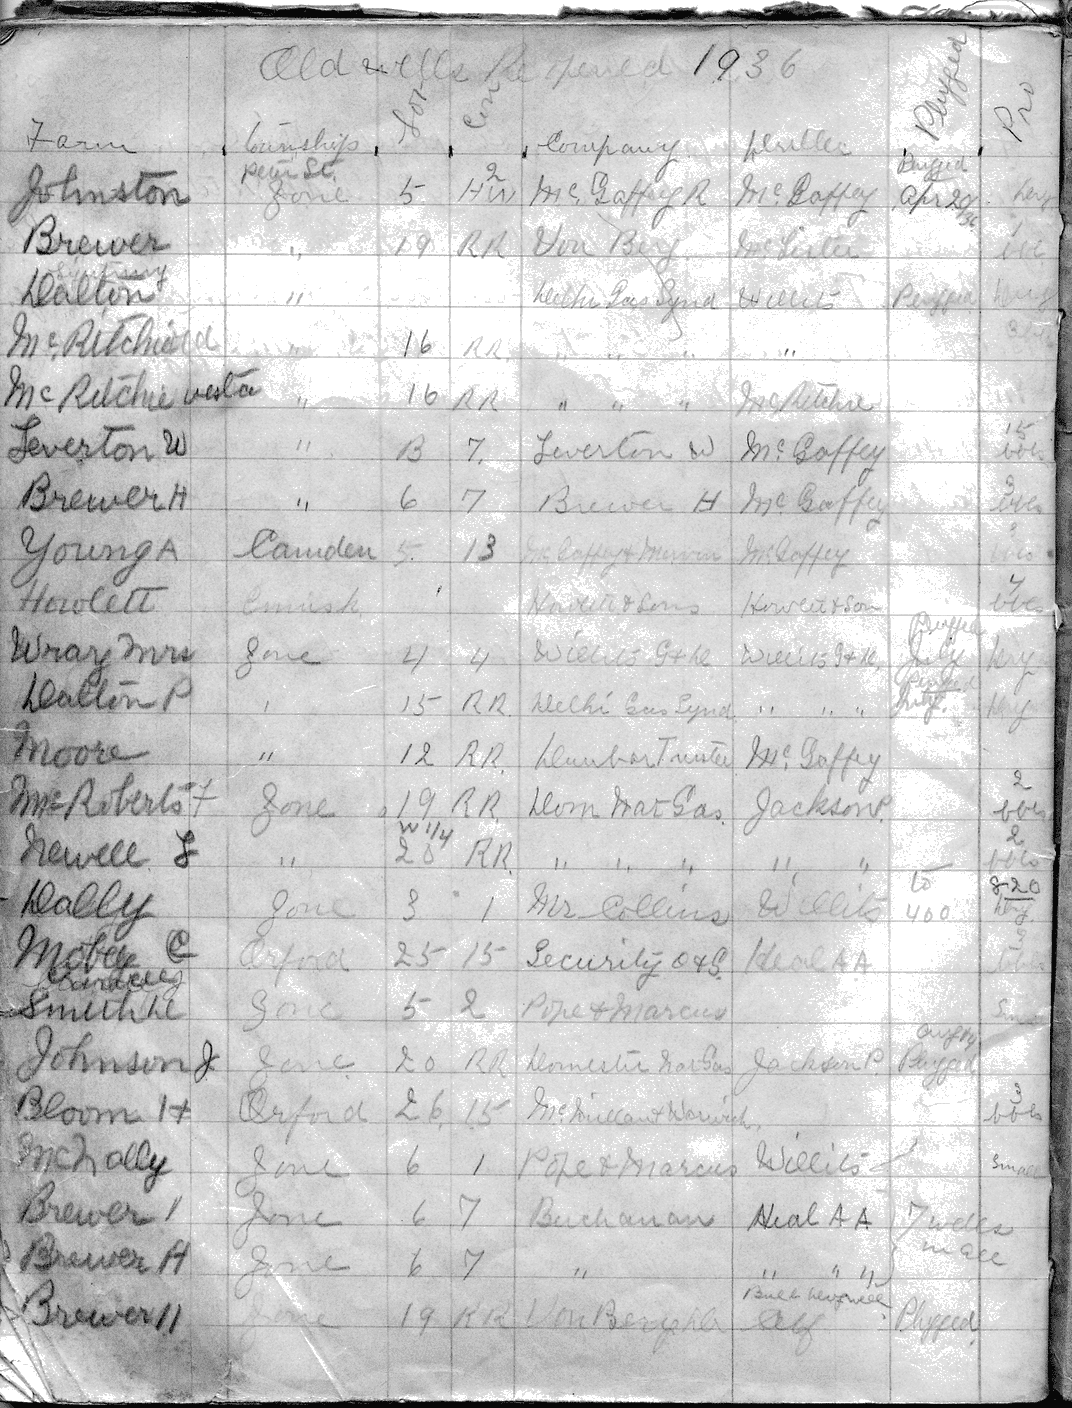 Old wells Re opened 1936
Farm Township Lot Con Company Driller Plugged Pro
Johnston Zone 5 2 HW McGaffey R McGaffey Plugged Apr 20/36 Dry
Brewer " 19 RR Von Berg
Dalton " Delhi Gas Synd Willits Plugged Dry
McRitchie " 16 RR " " " "
McRitchie " 16 RR " " " McRitchie
Leverton W " B 7 Leverton W McGaffey 15 bbls
Brewer H " 6 7 Brewer H McGaffey bbls
Young A Camden 5 13 McGaffey & McGaffey bbls
Howlett Howlett & Sons Howlett & Son bbls
Wray Mrs Zone 4 4 Willits Willits Plugged July Dry
Dalton P " 15 RR Delhi Gas Synd " " " Plugged Dry
Moore " 12 RR Dunbar Trustee McGaffey
McRoberts F Zone 19 RR Dom Nat Gas Jackson P. 2 bbls
Newell L " W 1/4 20 RR " " " " " 2 bbls
Dally Zone 3 1 Mr Collins Willits to 400 Dry
Mobey C Orford 25 15 Security O & G Heal A A bbls
Smith Zone 5 2 Pope & Marcus
Johnson J Zone 20 RR Domestic Nat Gas Jackson P. Aug 14 Plugged
Bloom H Orford 26 15 McMillan & 3 bbls
McNally Zone 6 1 Pope & Marcus Willits Small
Brewer Zone 6 7 Buchanan Heal A A 7 wells in all
Brewer H Zone 6 7 " " " "
Brewer H Zone 19 RR Von Berg Plugged